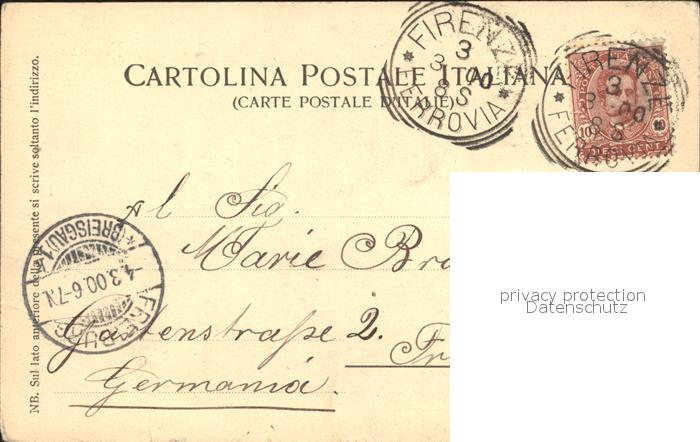 CARTOLINA POSTALE ITALIANA
(CARTE POSTALE D'ITALIE)
FIRENZE
3
3 00
8 S
FERROVIA
FIRENZE
3
3 00
8 S
FERRO
10 10
DIECI CENT
NB. Sul lato anteriore della presente si scrive soltanto l'indirizzo.
Al Sig.
Marie Bra
Gartenstraße 2.
Fr
Germania.
FREIBURG
4.3.00.6-7N.
(BREISGAU)1
privacy protection
Datenschutz